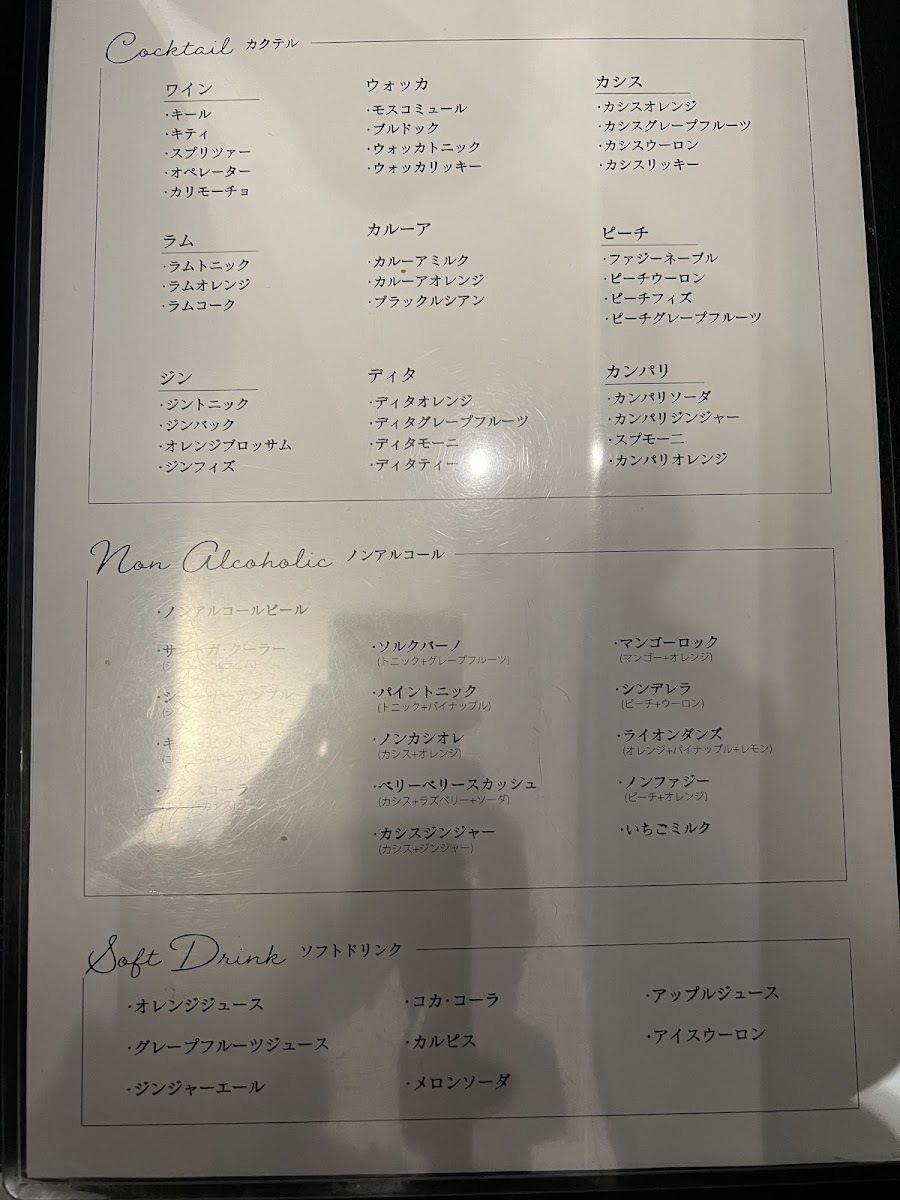 Cocktail カクテル
ワイン
・キール
・キティ
・スプリツァー
・オペレーター
・カリモーチョ
ウォッカ
・モスコミュール
・ブルドック
・ウォッカトニック
・ウォッカリッキー
カシス
・カシスオレンジ
・カシスグレープフルーツ
・カシスウーロン
・カシスリッキー
ラム
・ラムトニック
・ラムオレンジ
・ラムコーク
カルーア
・カルーアミルク
・カルーアオレンジ
・ブラックルシアン
ピーチ
・ファジーネーブル
・ピーチウーロン
・ピーチフィズ
・ピーチグレープフルーツ
ジン
・ジントニック
・ジンバック
・オレンジブロッサム
・ジンフィズ
ディタ
・ディタオレンジ
・ディタグレープフルーツ
・ディタモーニ
・ディタティー
カンパリ
・カンパリソーダ
・カンパリジンジャー
・スプモーニ
・カンパリオレンジ
Non Alcoholic ノンアルコール
・ノンアルコールビール
・ソルクバーノ
(トニック+グレープフルーツ)
・パイントニック
(トニック+パイナップル)
・ノンカシオレ
(カシス+オレンジ)
・ベリーベリースカッシュ
(カシス+ラズベリー+ソーダ)
・カシスジンジャー
(カシス+ジンジャー)
・マンゴーロック
(マンゴー+オレンジ)
・シンデレラ
(ピーチ+ウーロン)
・ライオンダンズ
(オレンジ+パイナップル+レモン)
・ノンファジー
(ピーチ+オレンジ)
・いちごミルク
Soft Drink ソフトドリンク
・オレンジジュース
・グレープフルーツジュース
・ジンジャーエール
・コカ・コーラ
・カルピス
・メロンソーダ
・アップルジュース
・アイスウーロン